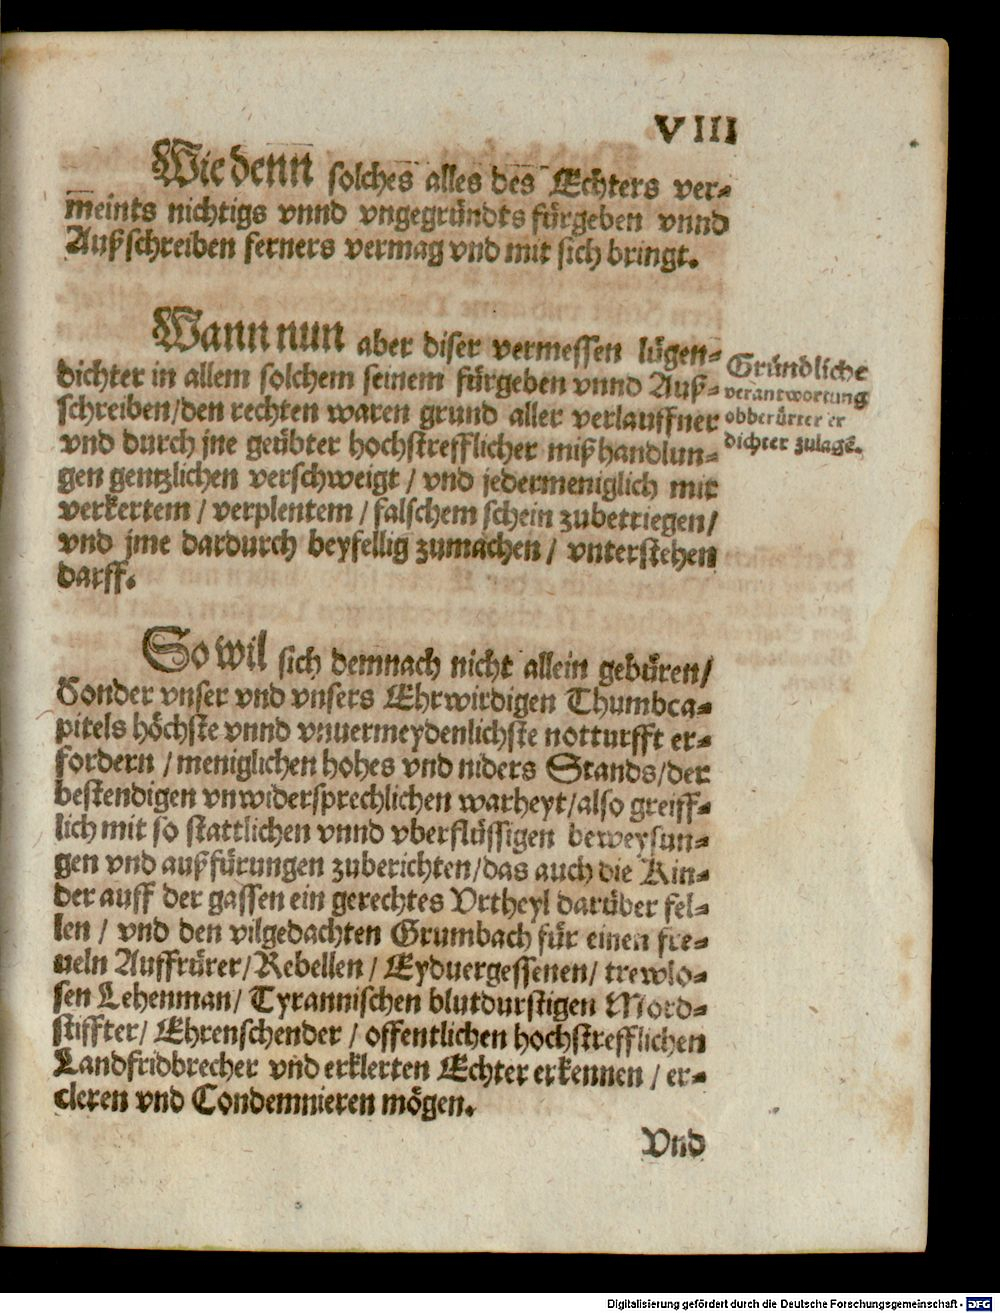 VIII
Wie denn solches alles des Echters ver-
meints nichtigs vnnd vngegründts fürgeben vnnd
Außschreiben ferners vermag vnd mit sich bringt.
Wann nun aber diser vermessen lügen-
dichter in allem solchem seinem fürgeben vnnd Auß-
schreiben/den rechten waren grund aller verlauffner
vnd durch jne geübter hochstrefflicher mißhandlun-
gen gentzlichen verschweigt / vnd jedermeniglich mit
verkertem / verplentem / falschem schein zubetriegen/
vnd jme dardurch beyfellig zumachen / vnterstehen
darff.
Gründliche
verantwortung
obberürter er
dichter zulagē.
So wil sich demnach nicht allein gebüren/
Sonder vnser vnd vnsers Ehrwirdigen Thumbca-
pitels höchste vnnd vnuermeydenlichste notturfft er-
fordern / meniglichen hohes vnd niders Stands/der
bestendigen vnwidersprechlichen warheyt/also greiff-
lich mit so stattlichen vnnd vberflüssigen beweysun-
gen vnd außfürungen zuberichten/das auch die Kin-
der auff der gassen ein gerechtes Vrtheyl darüber fel-
len / vnd den vilgedachten Grumbach für einen fre-
ueln Auffrürer/Rebellen / Eyduergessenen/ trewlo-
sen Lehenman/ Tyrannischen blutdurstigen Mord-
stiffter/ Ehrenschender / offentlichen hochstrefflichen
Landfridbrecher vnd erklerten Echter erkennen / er-
cleren vnd Condemnieren mögen.
Vnd
Digitalisierung gefördert durch die Deutsche Forschungsgemeinschaft - DFG